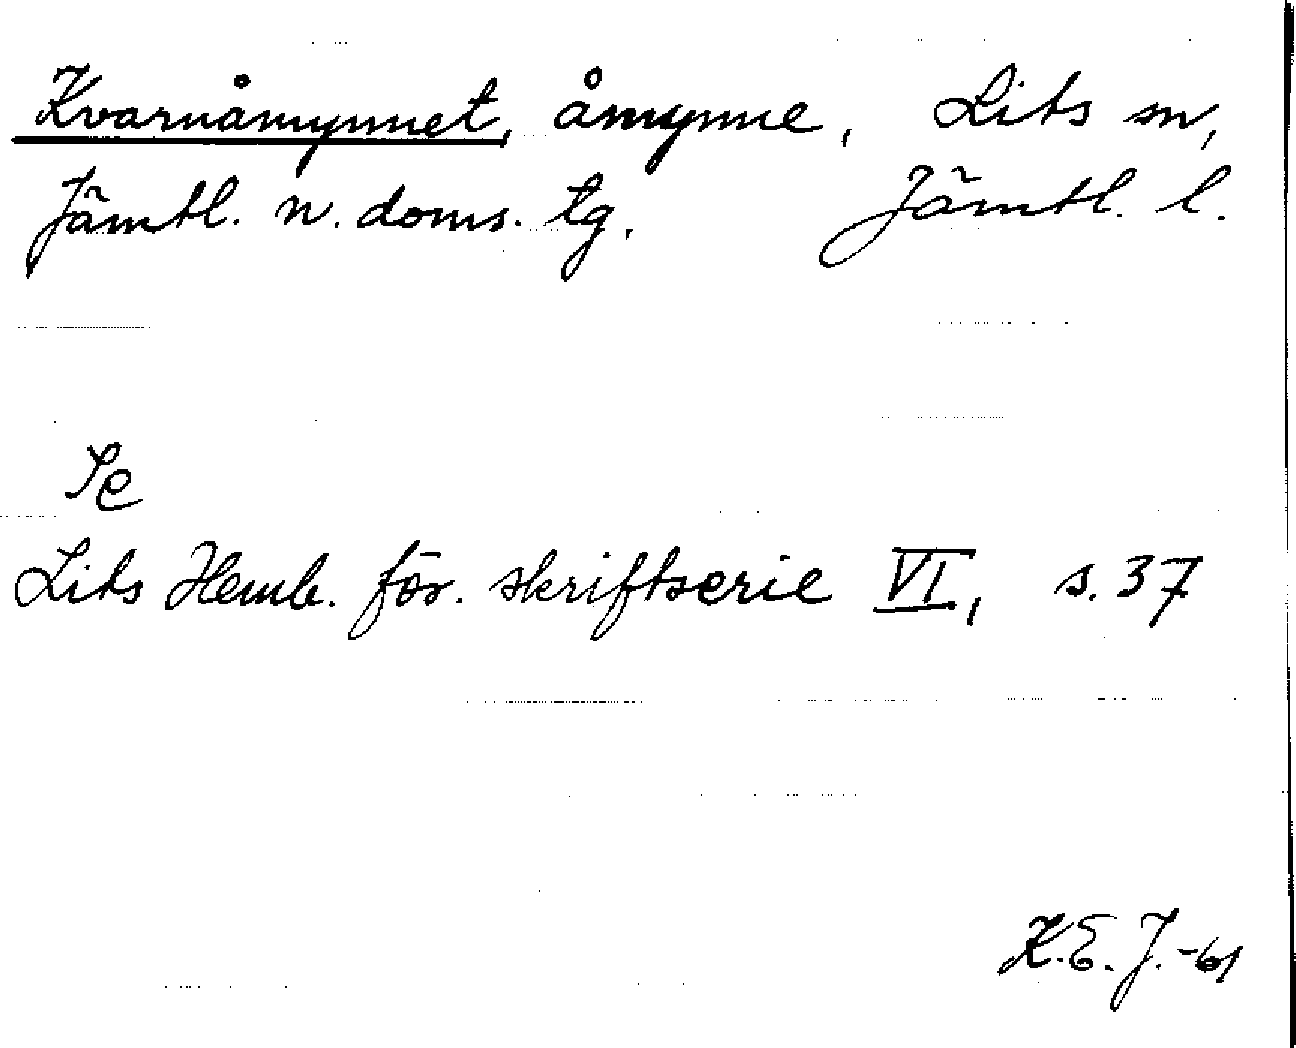 Kvarnåmynnet, åmynne, Lits sn,
Jämtl. n. doms. tg. Jämtl. l.
Se
Lits Hemb. för. skriftserie VI, s. 37
K.E.J.-61